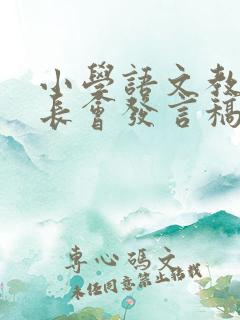 小學語文教
長會發言稿
專心碼文
未經同意禁止轉載